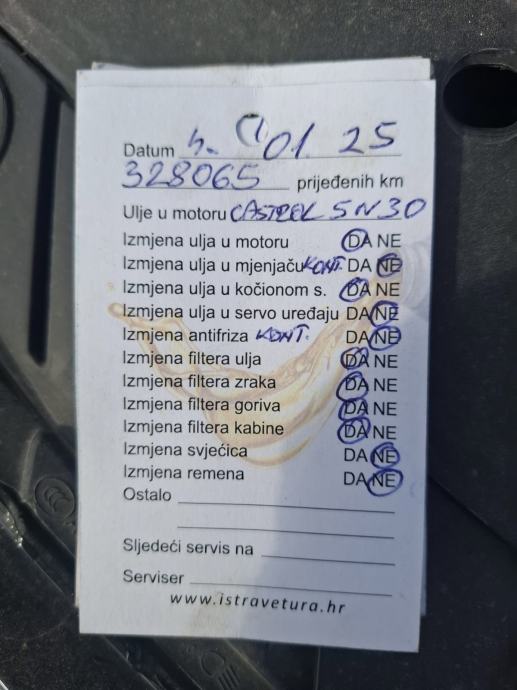 Datum 4. 01. 25
328065 prijeđenih km
Ulje u motoru CASTROL 5W30
Izmjena ulja u motoru DA NE
Izmjena ulja u mjenjaču KONT. DA NE
Izmjena ulja u kočionom s. DA NE
Izmjena ulja u servo uređaju DA NE
Izmjena antifriza KONT. DA NE
Izmjena filtera ulja DA NE
Izmjena filtera zraka DA NE
Izmjena filtera goriva DA NE
Izmjena filtera kabine DA NE
Izmjena svjećica DA NE
Izmjena remena DA NE
Ostalo
Sljedeći servis na
Serviser
www.istravetura.hr